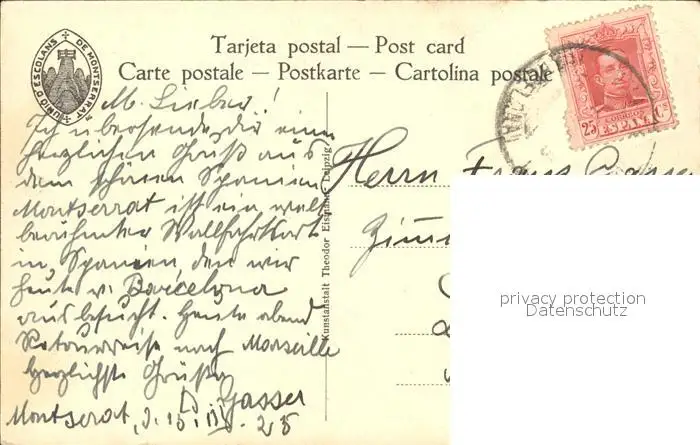 Tarjeta postal — Post card
Carte postale — Postkarte — Cartolina postale
UNIO D'ESCOLANS DE MONTSERRAT
CORREOS
25 ESPAÑA Cs
M. Lieber!
Ich übersende dir einen
herzlichen Gruß aus
dem schönen Spanien
Montserrat ist ein welt
berühmter Wallfahrtsort
in Spanien den wir
heute v. Barcelona
aus besucht. Heute abend
Retourreise nach Marseille
Herzlichste Grüße
Gasser
Montserrat,
25
Kunstanstalt Theodor Eismann, Leipzig
Herrn Franz
privacy protection
Datenschutz